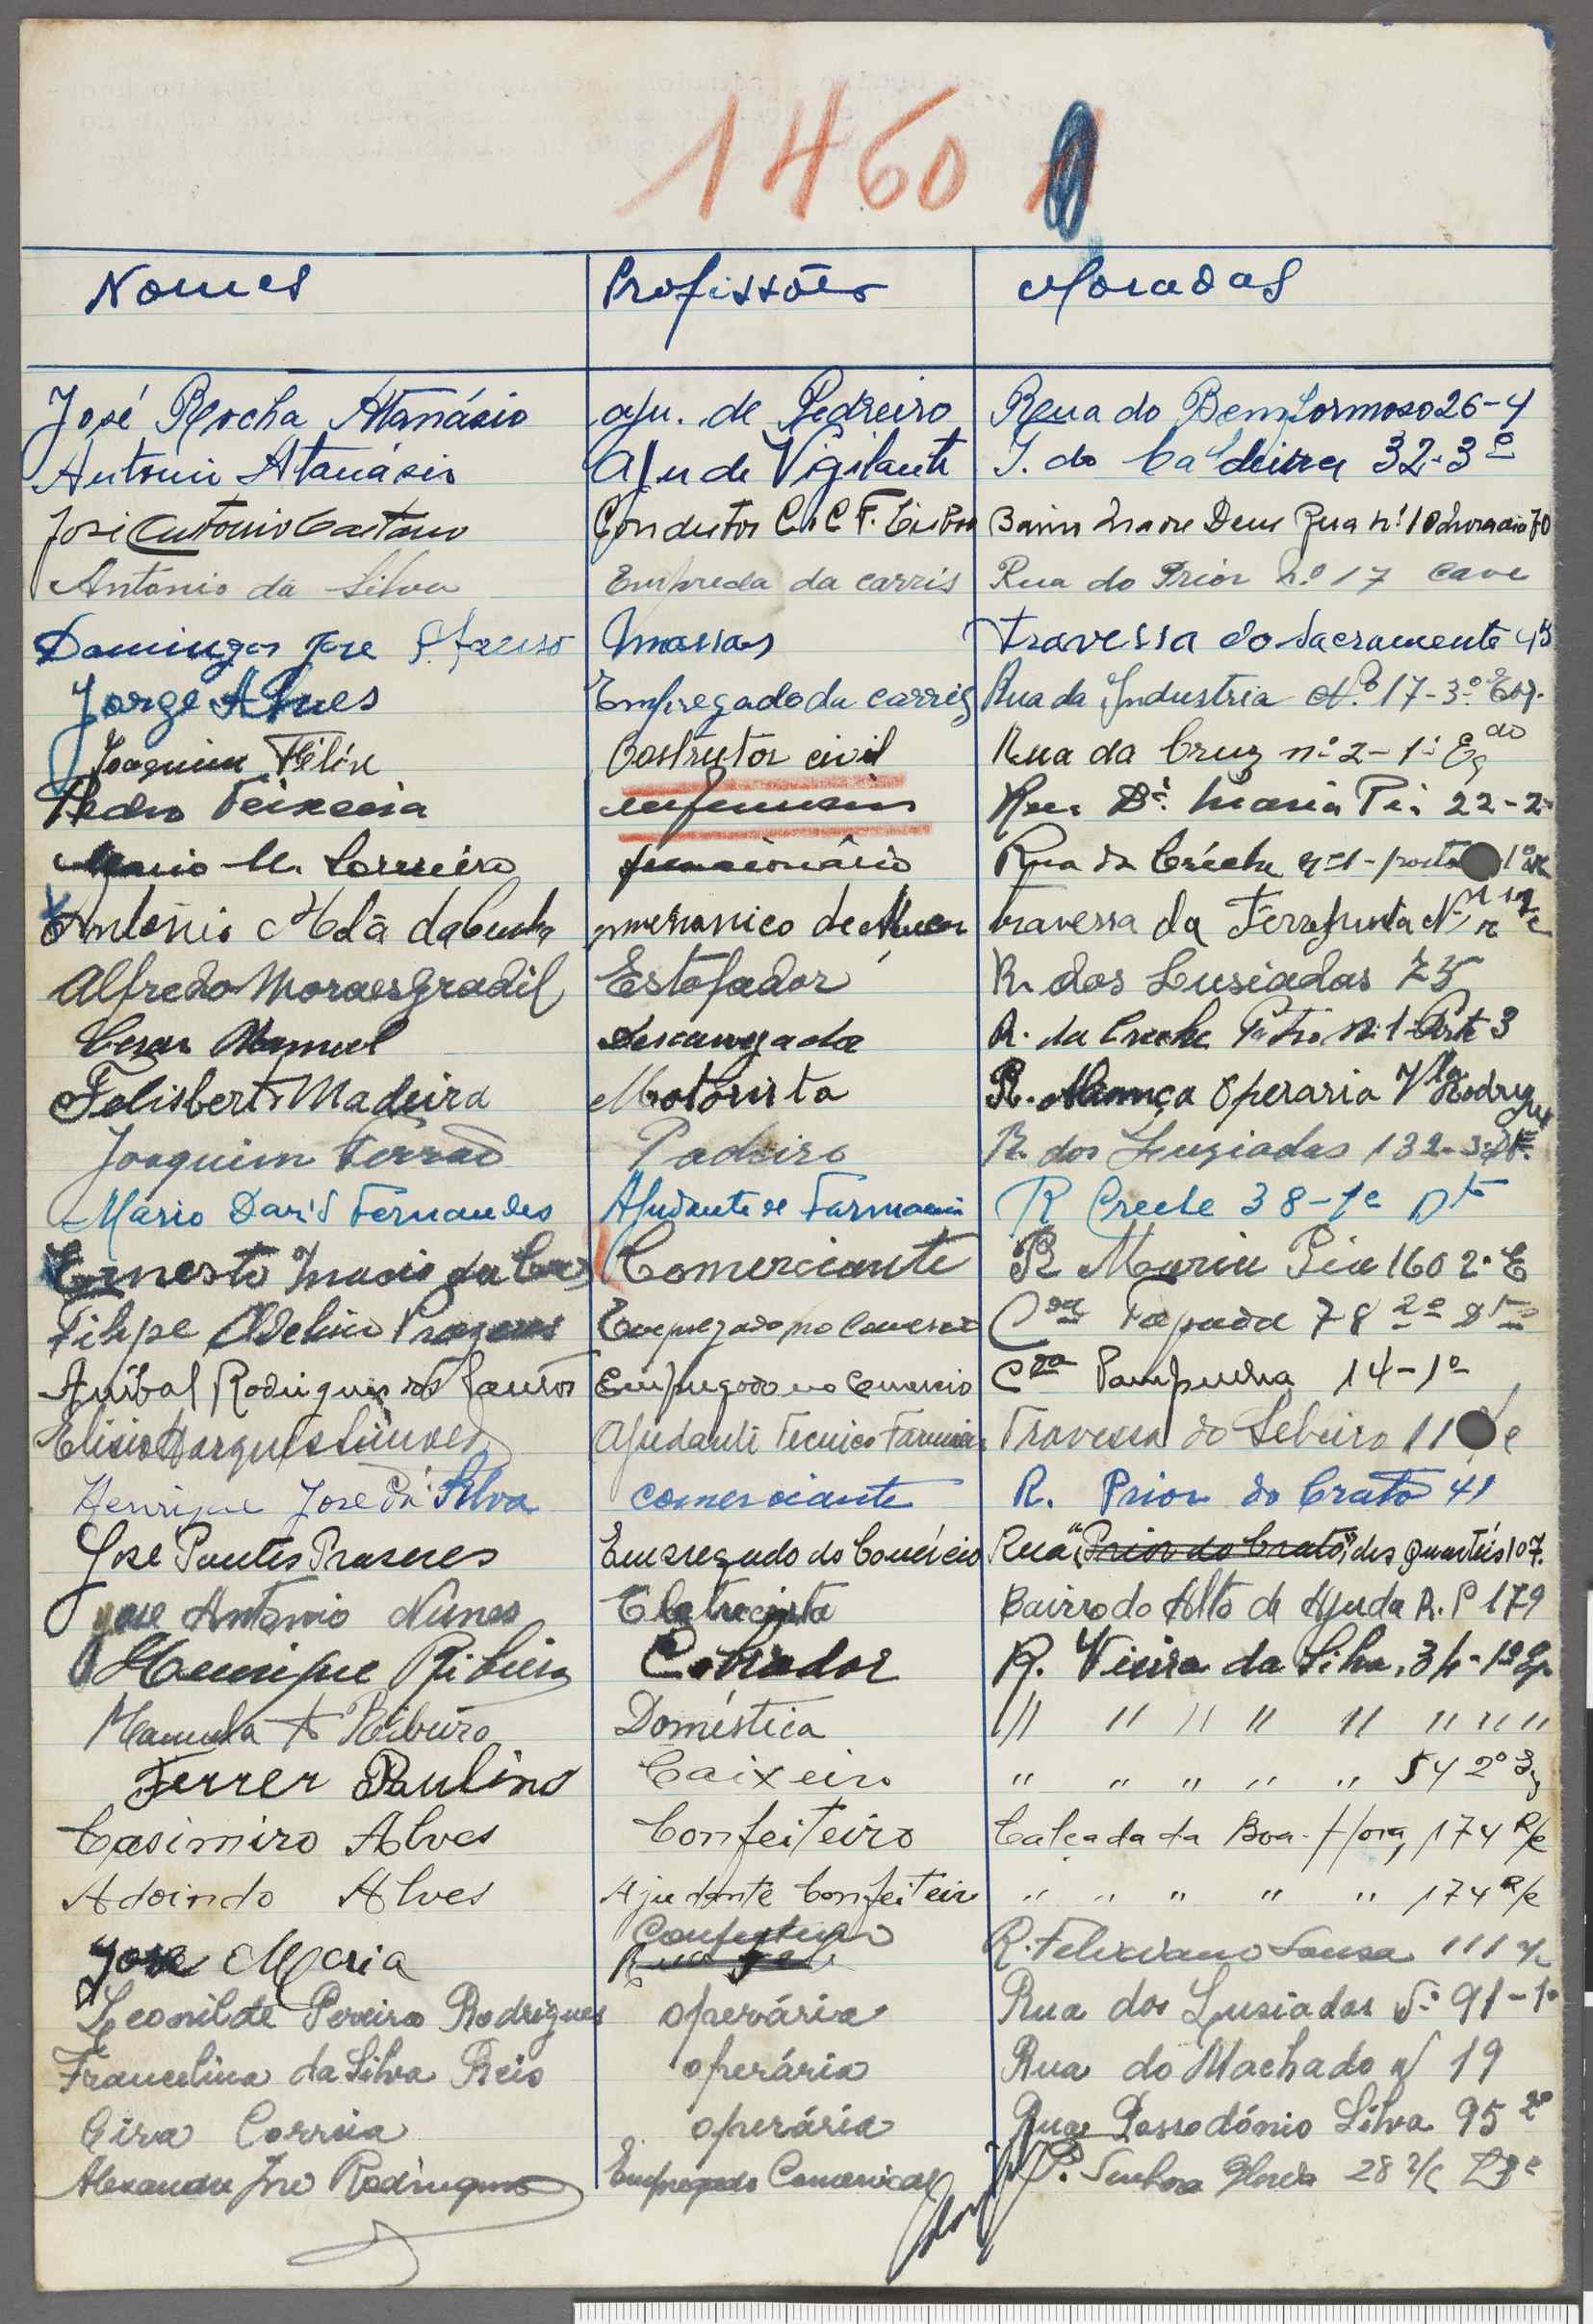 1460
Nomes Profissões Moradas
José Rocha Atanásio aju. de Pedreiro Rua do Bemformoso 26-4
António Atanásio Aju de Vigilante T. do Caldeira 32-3º
José Antonio Caetano Condutor C.C.F. Lisboa Bairro Madre Deus Rua nº 10 70
António da Silva da carris Rua do Prior nº 17 cave
Domingos Jose Travessa do Sacramento 45
Jorge Alves Empregado da carris Rua da Industria Nº 17-3º Esq.
Joaquim Félix Costrutor civil Rua da Cruz nº 2-1º
Pedro Teixeira Rua Dª. Maria Pia 22-2º
Mario M. funcionário Rua da Créche nº1-porta 1º
António da Cunha de travessa da
Alfredo Moraes Gradil Estofador R. dos Lusiadas 75
Cesar Manuel R. da Creche Pátio nº 1 Porta 3
Felisberto Madeira Motorista R. Aliança Operaria Vla Rodrigues
Joaquim Ferrão Padeiro R. dos Luziadas 132-3º
Mario David Fernandes Ajudante de Farmacia R Creche 38-1º Dto
Ernesto Inacio da Comerciante R Maria Pia 160 2º E
Filipe Adelino Prazeres Empregado no Comercio Cda Tapada 78 2º Dto
Anibal Rodrigues dos Santos Empregado no Comercio Cda Pampulha 14-1º
Elisio Marques Ajudante Tecnico Farmacia Travessa do Sebeiro 11
Henrique José da Silva comerciante R. Prior do Crato 41
José Pantes Prazeres Empregado do Comércio Rua "Prior do Crato", dos Quartéis 107.
José Antonio Nunes Eletrecista Bairro do Alto da Ajuda R. P 179
Henrique Ribeiro Cobrador R. Vieira da Silva, 34-1º Eq.
Manuela A Ribeiro Doméstica /// // // // // // // //
Ferrer Paulino Caixeiro " " " " " 54 2º
Casimiro Alves Confeiteiro Calçada da Boa-Hora, 174 R/c
Adoindo Alves Ajudante Confeiteiro " " " " " 174 R/c
José Maria Confeiteiro R. Feliciano Sousa 111
Leonilde Pereira Rodrigues operária Rua dos Lusiadas Nº 91-1º
Francelina da Silva Reis operária Rua do Machado Nº 19
Cira Correia operária Rua Possodónio Silva 95 2º
Alexandre José Rodrigues Empregado Comercial P. Senhora Gloria 28 r/c